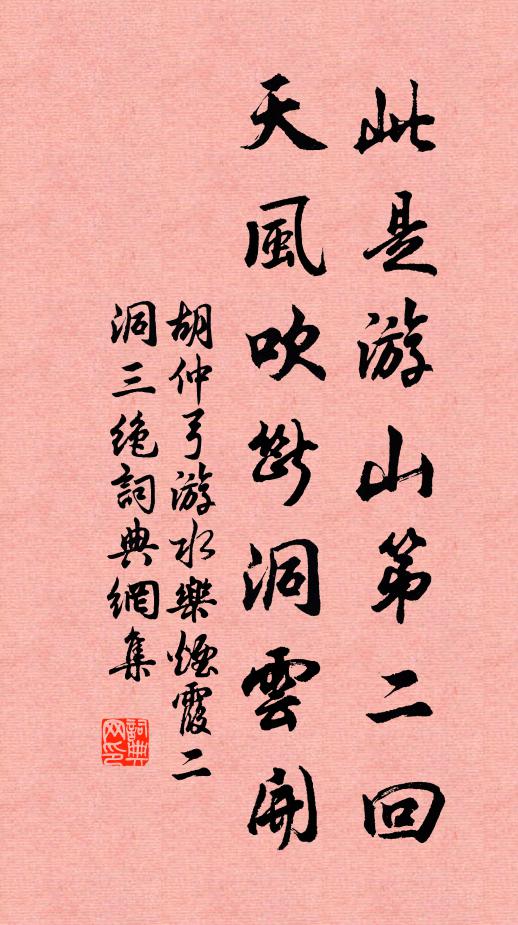 此是游山第二回
天風吹斷洞雲開
胡仲弓游水樂煙霞二
洞三絶詞典網集
詞典網印